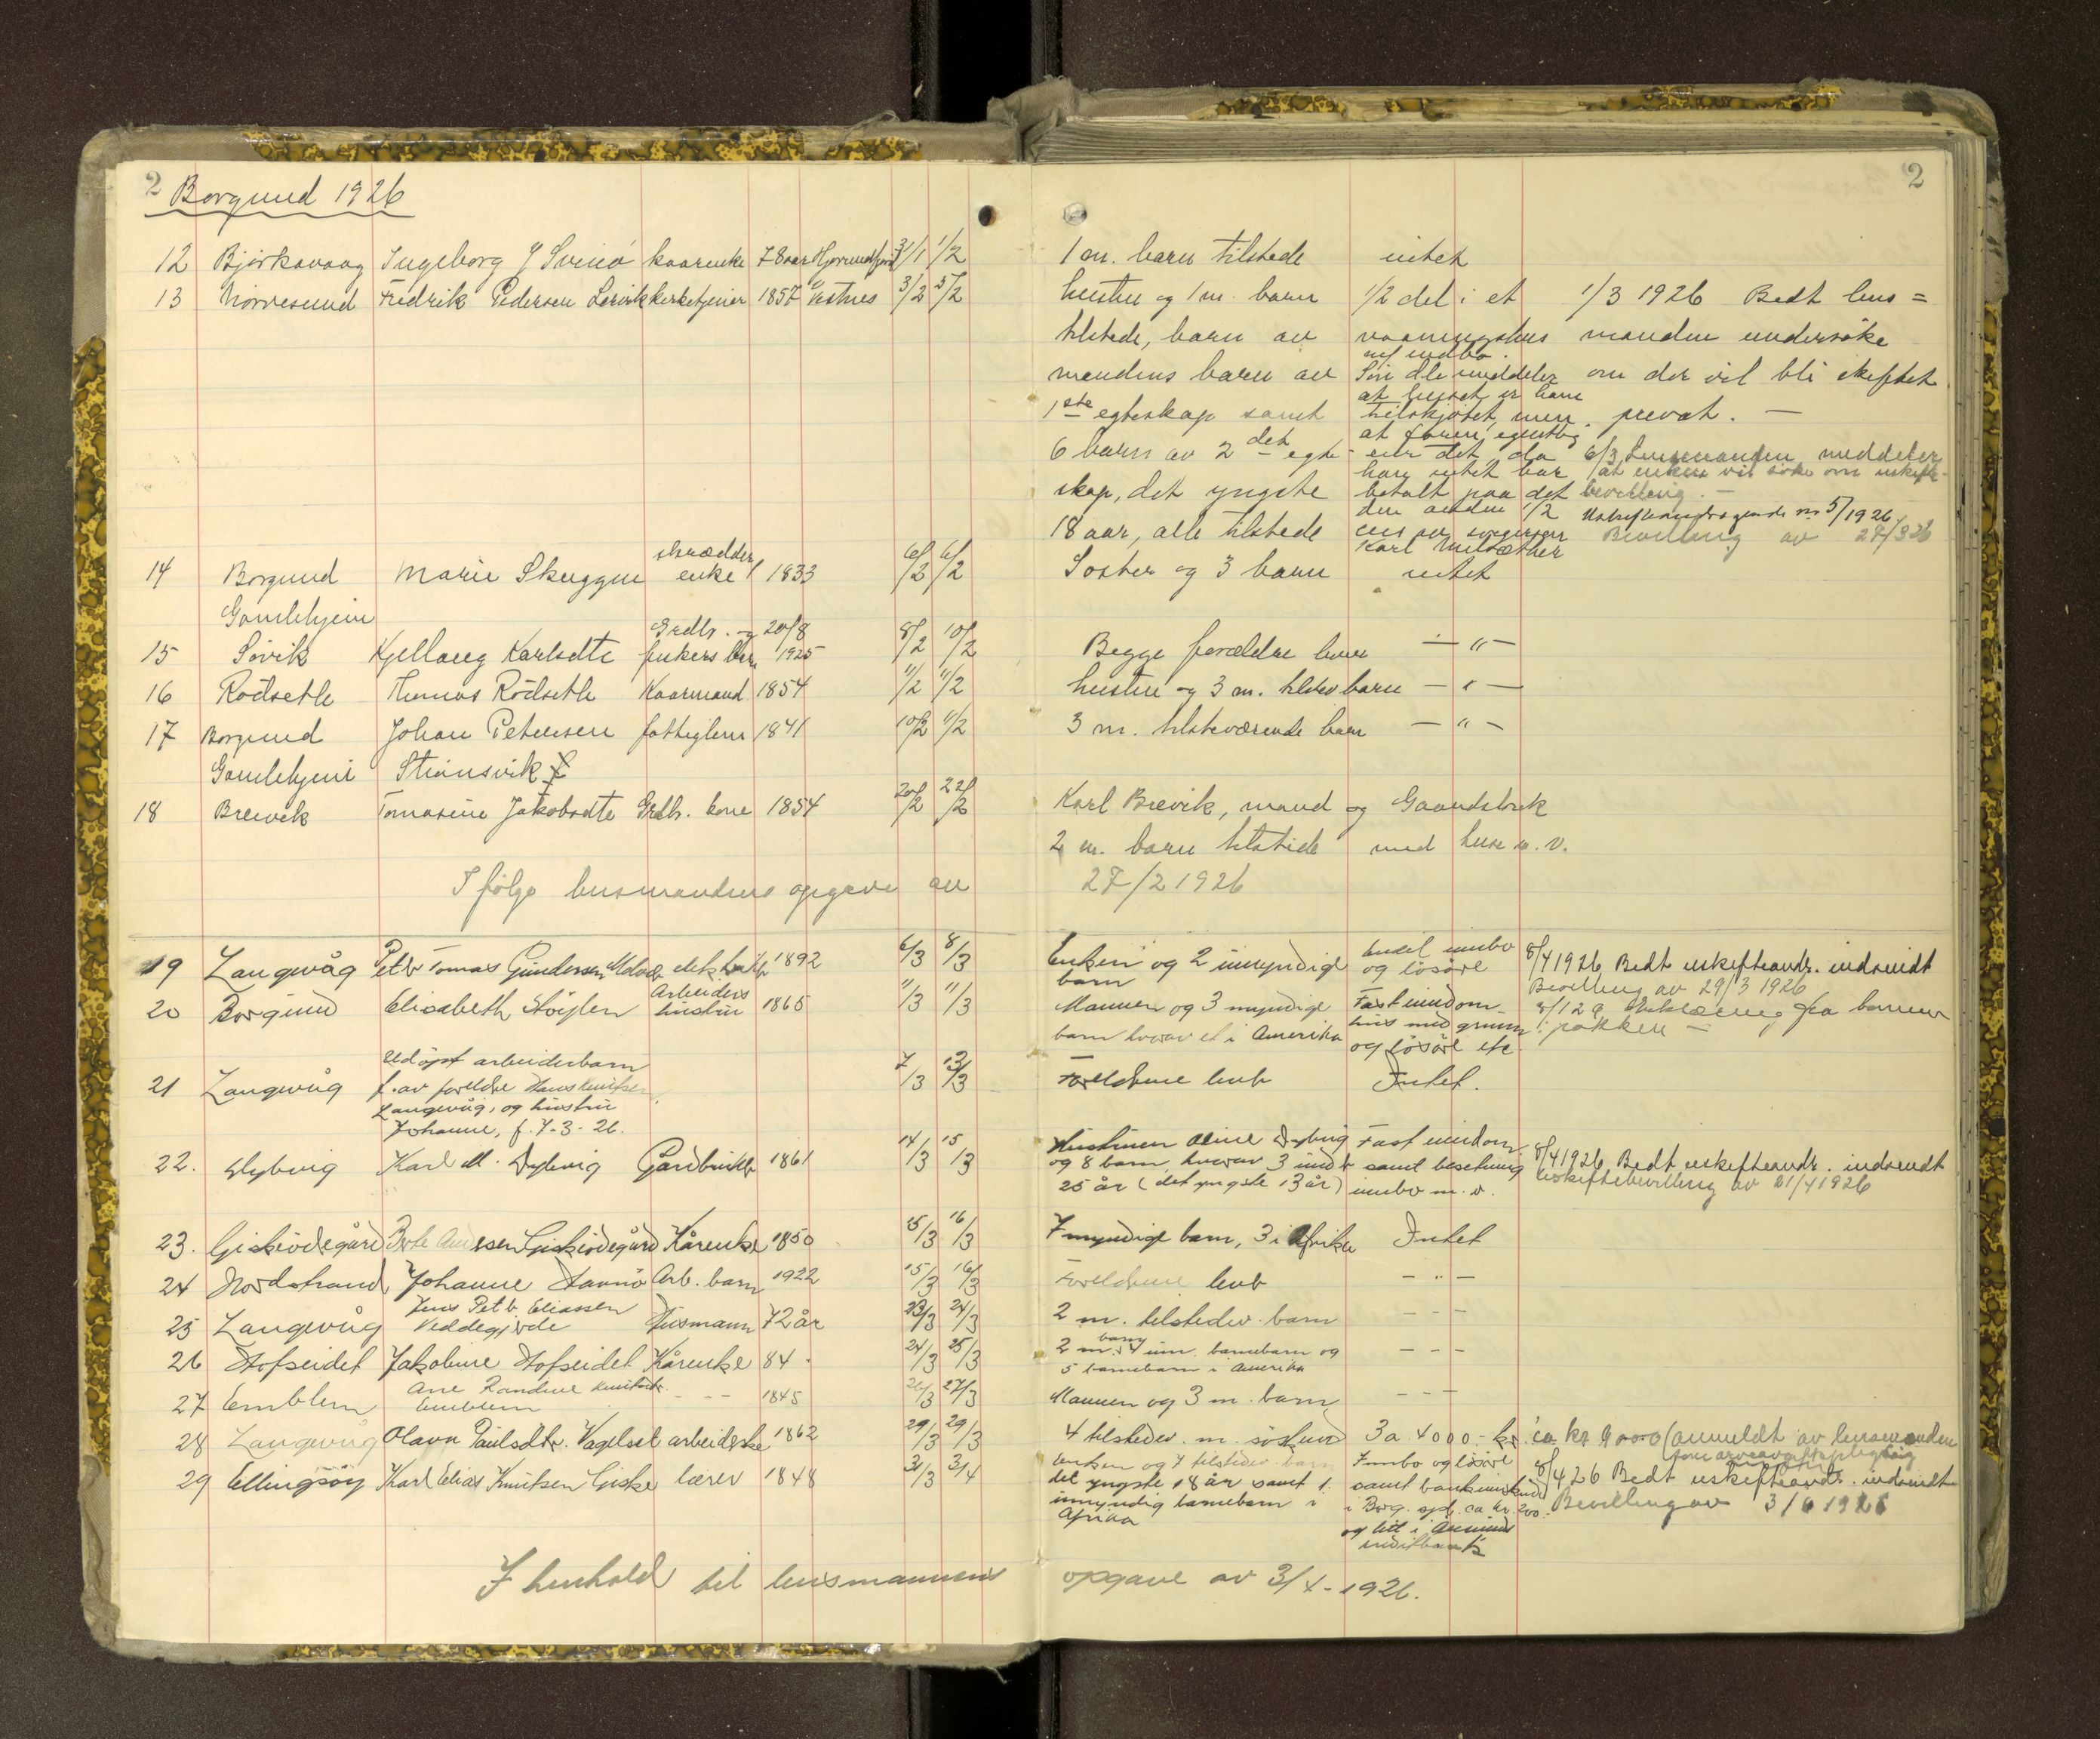 2 Borgund 1926
2
12 Bjørkavaag Ingeborg J Svinø kaarenke 78 aar Hjørundfjord 31/1 1/2 1 m. barn tilstede intet
13 Nørvesund Fredrik Pedersen Lervik kirketjener 1857 Vestnes 3/2 5/2 hustru og 1 m. barn 1/2 del i et 1/3 1926 Bedt lens =
tilstede, barn av vaaningshus manden undersøke
m/ indbo.
mandens barn av Søn dle meddeler om der vil bli skiftet
at huset er ham
1ste egteskap samt tilskjøtet, men privat. —
at faren egentlig
6 barn av 2det egte- eier det, da 6/3 Lensmanden meddeler
han intet har at enken vil søke om uskifte-
skap, det yngste betalt paa det bevilling. —
den anden 1/2 Uskifteandragende no 5/1926
18 aar, alle tilstede eies av svigersøn Bevilling av 27/3 26
Karl
14 Borgund Marie Skuggen skrædder enke 1833 6/2 6/2 Søster og 3 barn intet
Gamlehjem
15 Søvik Kjellaug Karlsdtr Grdbr. og fiskers barn 20/8 1925 8/2 10/2 Begge forældre lever — " —
16 Rødseth Thomas Rødseth Kaarmand 1854 11/2 11/2 hustru og 3 m. tilstev barn — " —
17 Borgund Johan Petersen fattiglem 1841 10/2 11/2 3 m. tilsteværende barn — " —
Gamlehjem Strømsvik
18 Breivik Tomasine Jakobsdtr Grdbr. kone 1854 20/2 22/2 Karl Brevik, mand og Gaardsbruk
2 m. barn tilstede med huse m. v.
I følge lensmandens opgave av 27/2 1926
19 Langevåg Petter Tomas Gundersen Molvær elektriker 1892 6/3 8/3 Enken og 2 umyndige Endel innbo 8/4 1926 Bedt uskifteandr. indsendt
barn og løsøre Bevilling av 29/3 1926
20 Borgund Elisabeth Støylen Arbeiders hustru 1865 11/3 11/3 Mannen og 3 myndige Fast eiendom 8/12 9 fra barnene
barn hvorav et i Amerika hus med grunn i pakken —
og løsøre etc
Udøpt arbeiderbarn
21 Langevåg f. av foreldre Hans Knutsen 7/3 13/3 Foreldrene lever Intet.
Langevåg, og hustru
Johanne, f. 7-3-26.
22. Dybvig Karl M. Dybvig Gårdbruker 1861 14/3 15/3 Hustruen Oline Dybvig Fast eiendom 8/4 1926 Bedt uskifteandr. indsendt
og 8 barn, hvorav 3 under samt besetning Uskiftebevilling av 21/4 1926
25 år (det yngste 13 år) innbo m. v.
23. Giskeødegård Giskeødegård Kårenke 1850 15/3 16/3 7 myndige barn, 3 i Afrika Intet
24 Nordstrand Johanne Havnø Arb. barn 1922 15/3 16/3 Foreldrene lever — " —
25 Langevåg Jens Petter Eliassen Veddegjerde Husmann 72 år 23/3 24/3 2 m. tilstedev. barn — - —
26 Hofseidet Jakobine Hofseidet Kårenke 84 24/3 25/3 2 m. barn, um. barnebarn og — - —
5 barnebarn i Amerika
27 Emblem Ane Randine Knutsdtr Emblem - - - 1845 26/3 27/3 Mannen og 3 m. barn — - —
28 Langevåg Olava Paulsdtr. Vagelset arbeiderske 1862 29/3 29/3 4 tilstedev. m. søsken 3 a 4000 kr. ca kr 9000 (anmeldt av lensmanden
29 Ellingsøy Karl Elias Knutsen Giske lærer 1848 31/3 3/4 Enken og 7 tilstedev. barn Innbo og løsøre 8/4 26 Bedt uskifteandr. indsendt
det yngste 18 år samt 1 samt bankinnskud Bevilling av 3/6 1926
umyndig barnebarn i i Borg. spb. ca kr. 200
Afrika og litt i Ålesunds
I henhold til lensmannens opgave av 3/4 - 1926.